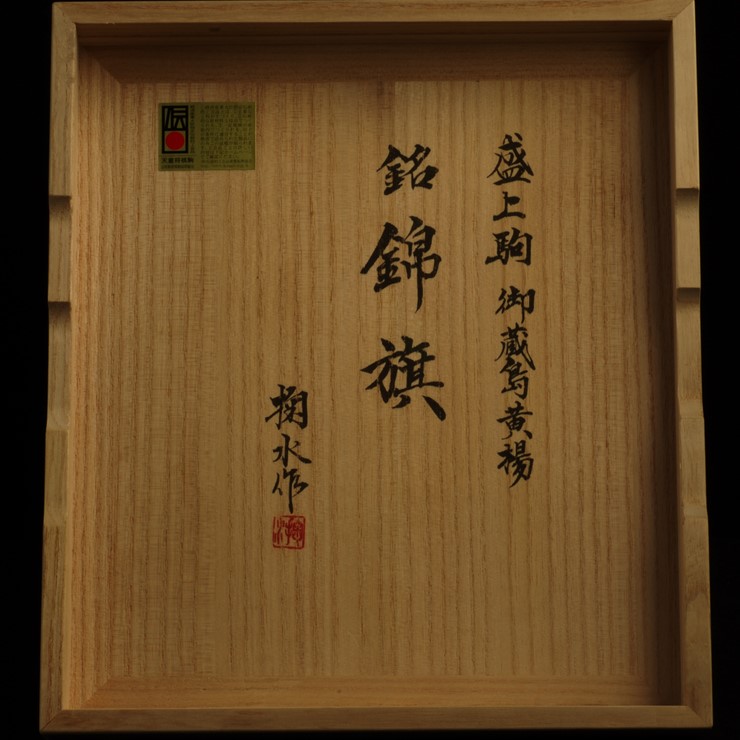 盛上駒 御蔵島黄楊
銘 錦旗
掬水作
伝
天童将棋駒